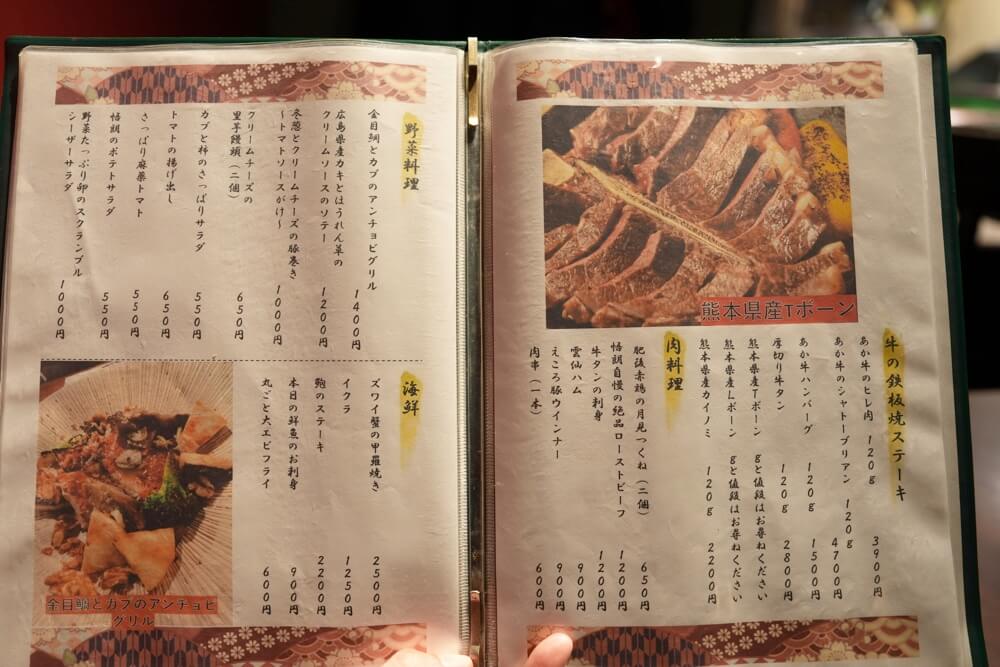 熊本県産Tボーン
牛の鉄板焼ステーキ
あか牛のヒレ肉 120g 3900円
あか牛のシャトーブリアン 120g 4700円
あか牛ハンバーグ 120g 1500円
厚切り牛タン 120g 2800円
熊本県産Tボーン gと値段はお尋ねください
熊本県産Lボーン gと値段はお尋ねください
熊本県産カイノミ 120g 2200円
肉料理
肥後赤鶏の月見つくね(二個) 650円
悟朗自慢の絶品ローストビーフ 1200円
牛タンの刺身 1200円
雲仙ハム 900円
えころ豚ウインナー 900円
肉串(一本) 600円
野菜料理
金目鯛とカブのアンチョビグリル 1400円
広島県産カキとほうれん草の
クリームソースのソテー 1200円
冬葱とクリームチーズの豚巻き
〜トマトソースがけ〜 1000円
クリームチーズの
里芋饅頭(二個) 650円
カブと柿のさっぱりサラダ 550円
トマトの揚げ出し 650円
さっぱり麻薬トマト 550円
悟朗のポテトサラダ 550円
野菜たっぷり卵のスクランブル
シーザーサラダ 1000円
海鮮
ズワイ蟹の甲羅焼き 2500円
イクラ 1250円
鮑のステーキ 2200円
本日の鮮魚のお刺身 900円
丸ごと大エビフライ 600円
金目鯛とカブのアンチョビ
グリル